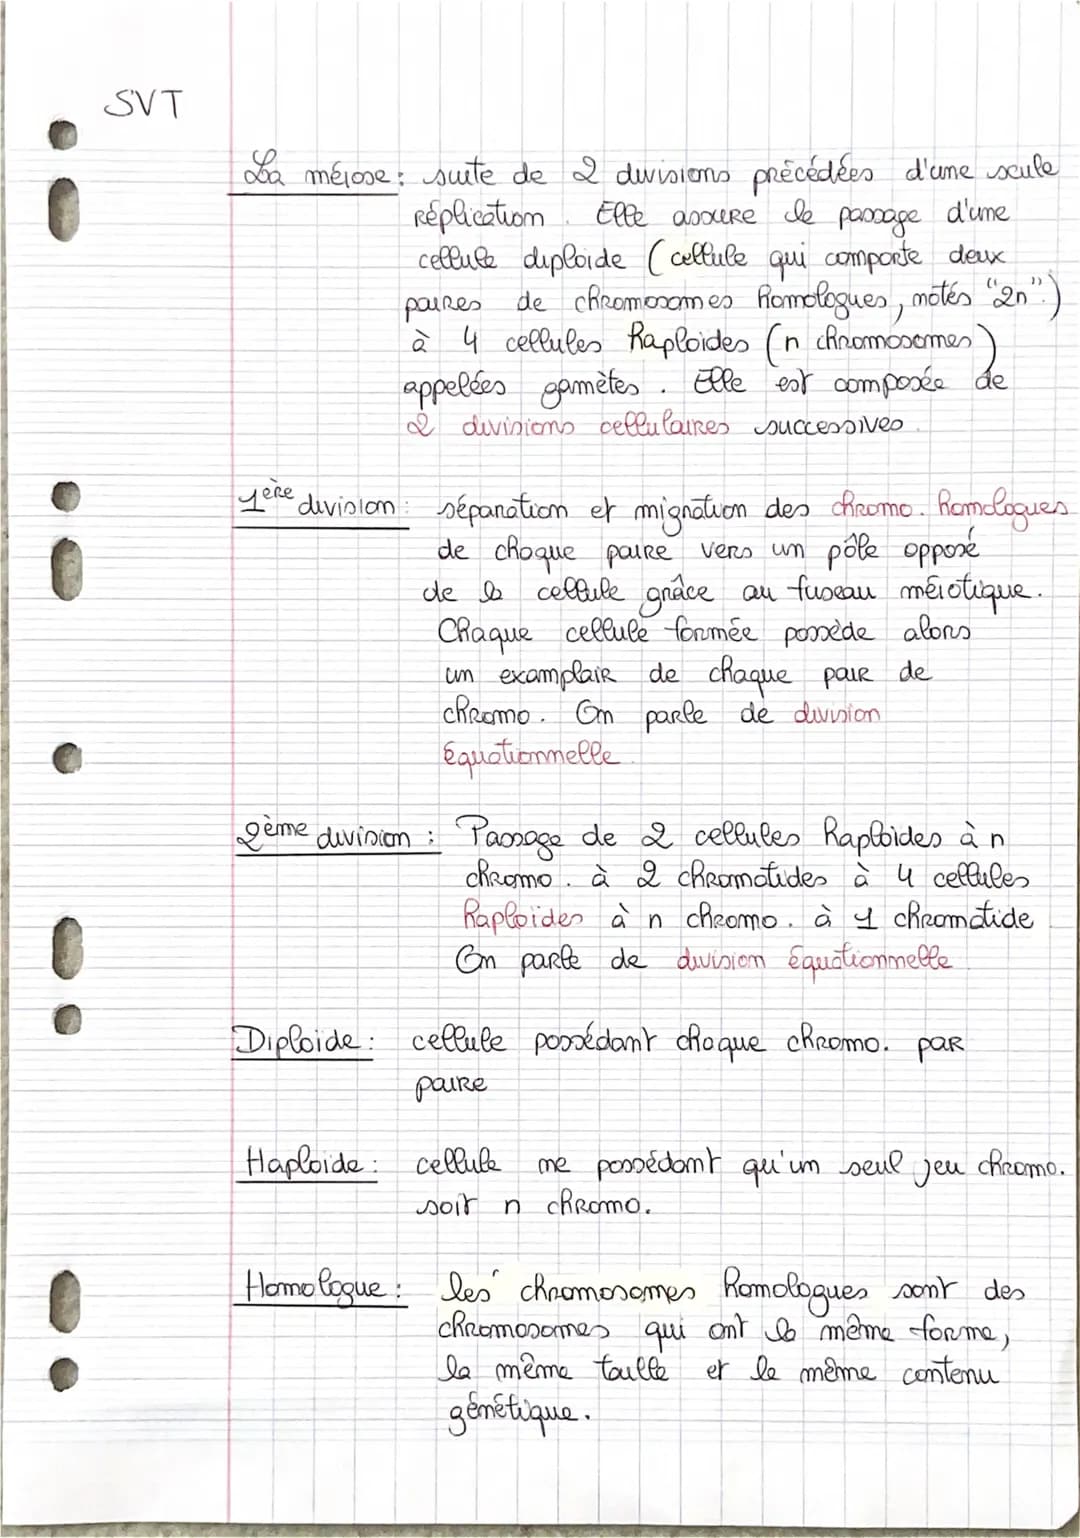 SVT
La méiose : suite de 2 divisions précédées d'une seule
réplication. Elle assure le passage d'une
cellule diploide (cellule qui comporte deux
paires de chromosomes homologues, notés "2n".)
à 4 cellules haploides (n chromosomes)
appelées gamètes. Elle est composée de
2 divisions cellulaires successives.
1ère division : séparation et mignation des chromo. homologues
de chaque paire vers un pôle opposé
de la cellule grâce au fuseau méiotique.
Chaque cellule formée possède alors
un examplair de chaque pair de
chromo. On parle de division
équationnelle.
2ème division : Passage de 2 cellules haploides à n
chromo. à 2 chromatides à 4 cellules
haploides à n chromo. à 1 chromatide.
On parle de division équationnelle.
Diploide : cellule possédant chaque chromo. par
paire
Haploide : cellule ne possédant qu'un seul jeu chromo.
soit n chromo.
Homologue : les chromosomes homologues sont des
chromosomes qui ont la même forme,
la même taille et le même contenu
génétique.